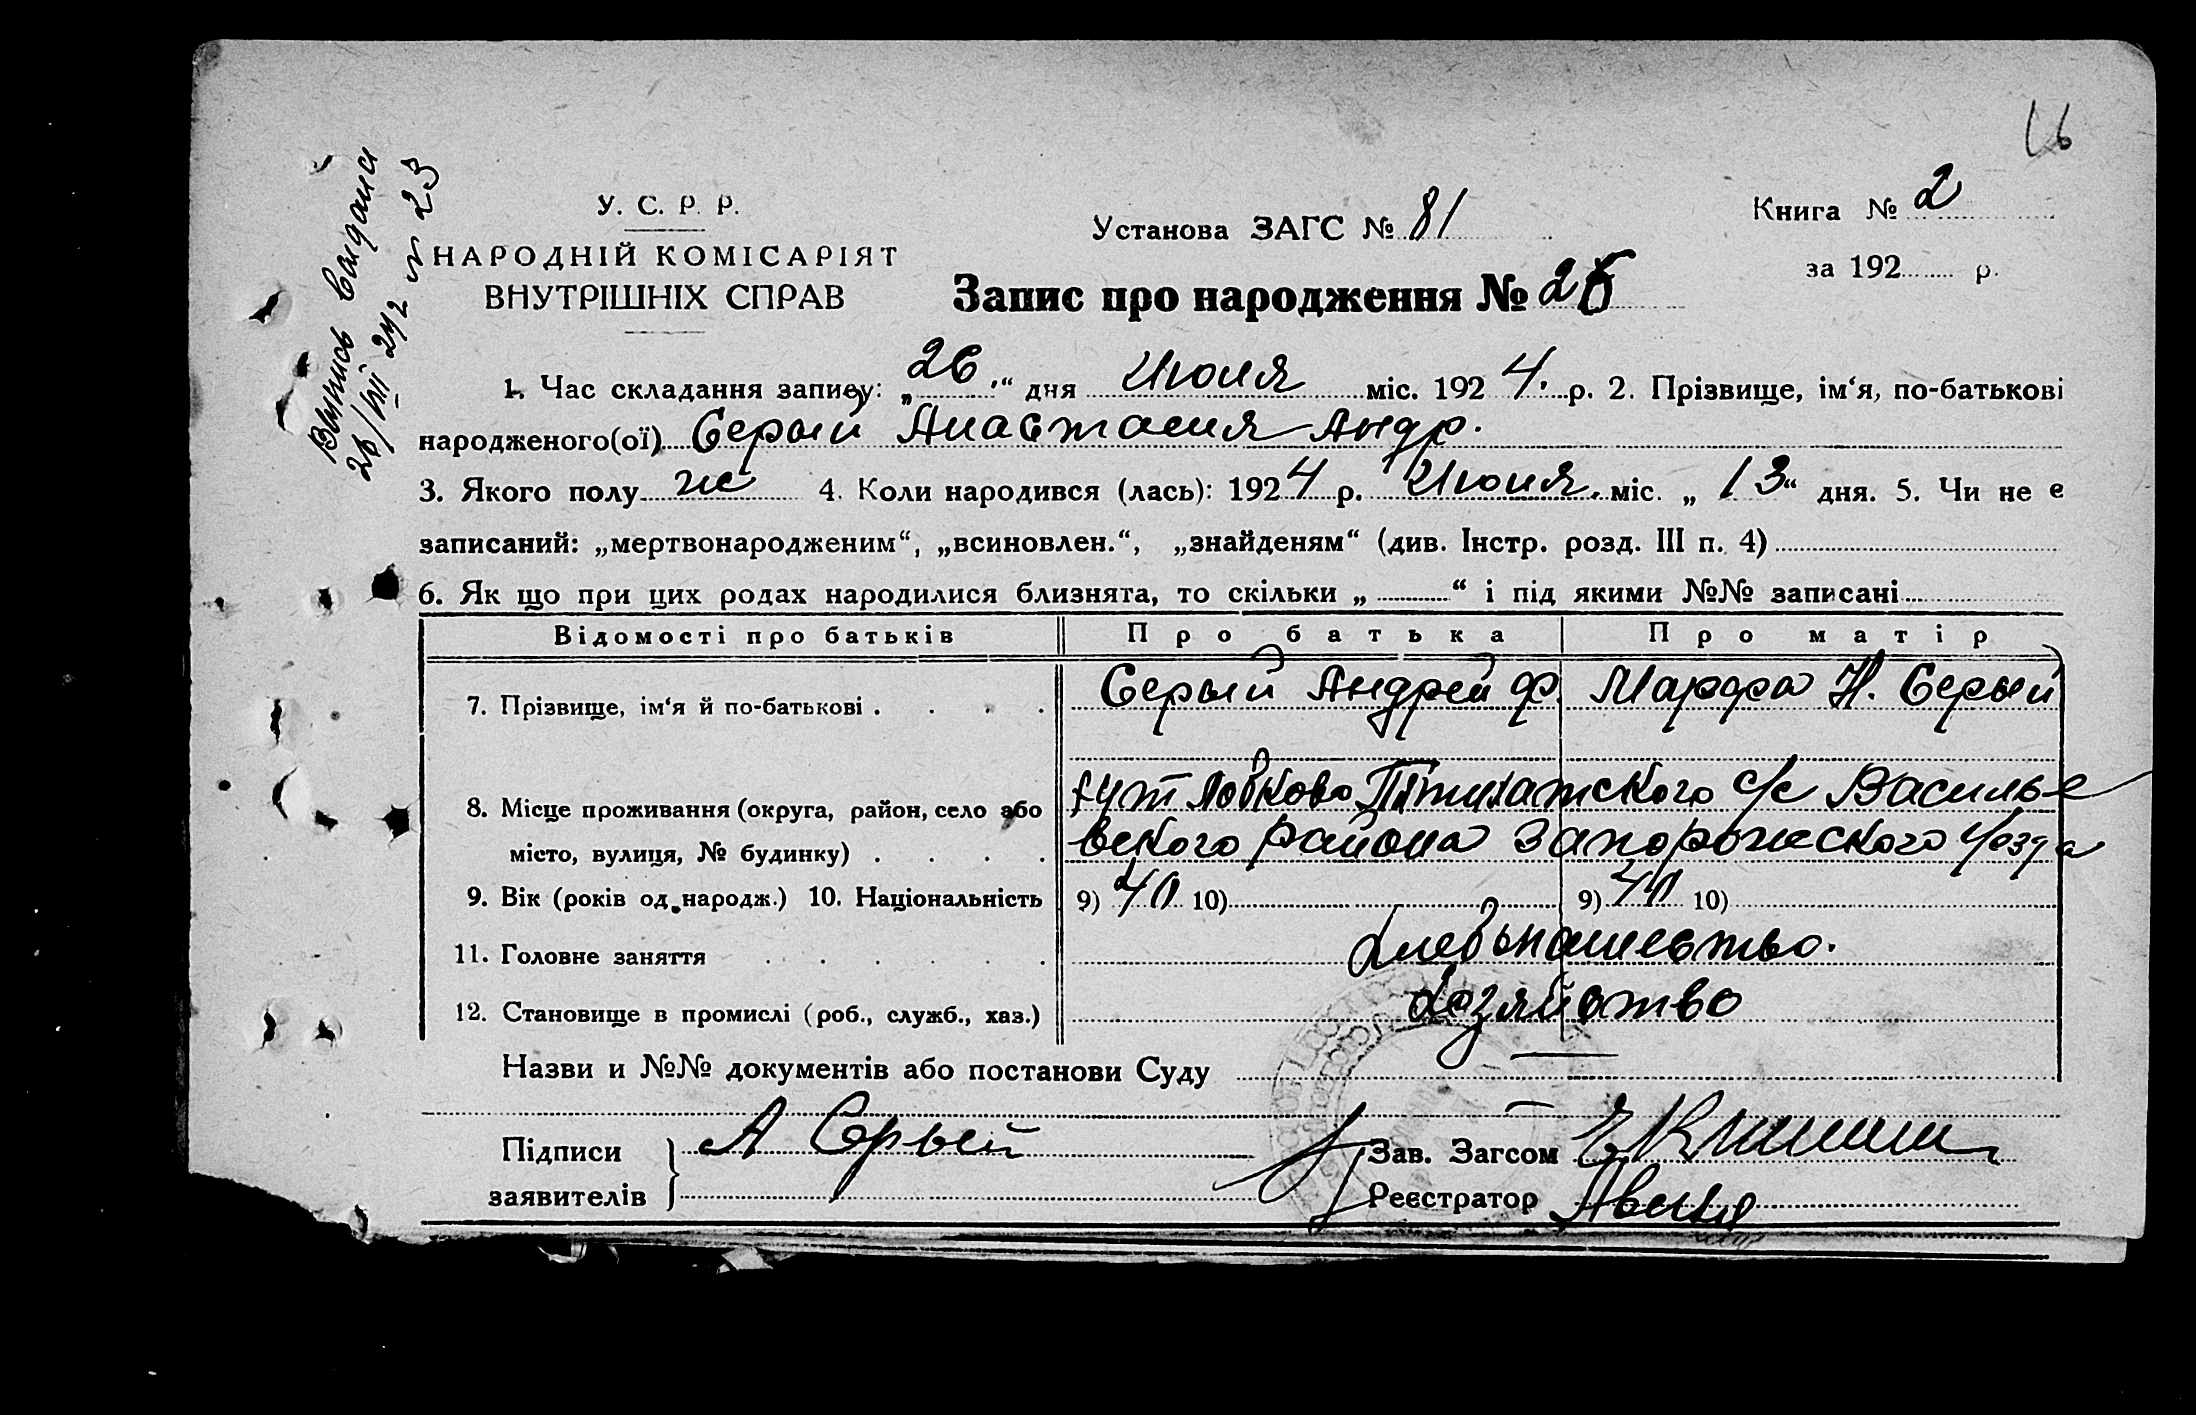 16
Выпись выдана
26/VIII 24 г № 23
У. С. Р. Р.
НАРОДНІЙ КОМІСАРІЯТ
ВНУТРІШНІХ СПРАВ
Установа ЗАГС № 81
Книга № 2
за 192 р.
Запис про народження № 26
1. Час складання запису: „26.“ дня Июля міс. 1924. р. 2. Прізвище, ім‘я, по-батькові
народженого(ої) Серый Анастасия Андр.
3. Якого полу же 4. Коли народився (лась): 1924 р. Июля міс. „13“ дня. 5. Чи не є
записаний: „мертвонародженим“, „всиновлен.“, „знайденям“ (див. Інстр. розд. III п. 4)
6. Як що при цих родах народилися близнята, то скільки „ “ і під якими №№ записані
Відомості про батьків Про батька Про матір
7. Прізвище, ім‘я й по-батькові . . . . Серый Андрей Ф. Марфа Н. Серый
8. Місце проживання (округа, район, село або хут Попково с/с Василье
місто, вулиця, № будинку) . . . . вского района Запорожеского уезда
9. Вік (років од народж.) 10. Національність 9) 40 10) 9) 40 10)
11. Головне заняття . . . . . . Хлебопашество.
12. Становище в промислі (роб., служб., хаз.) Хозяйство
Назви и №№ документів або постанови Суду —
Підписи
заявителів } А Серый
Зав. Загсом
Реєстратор